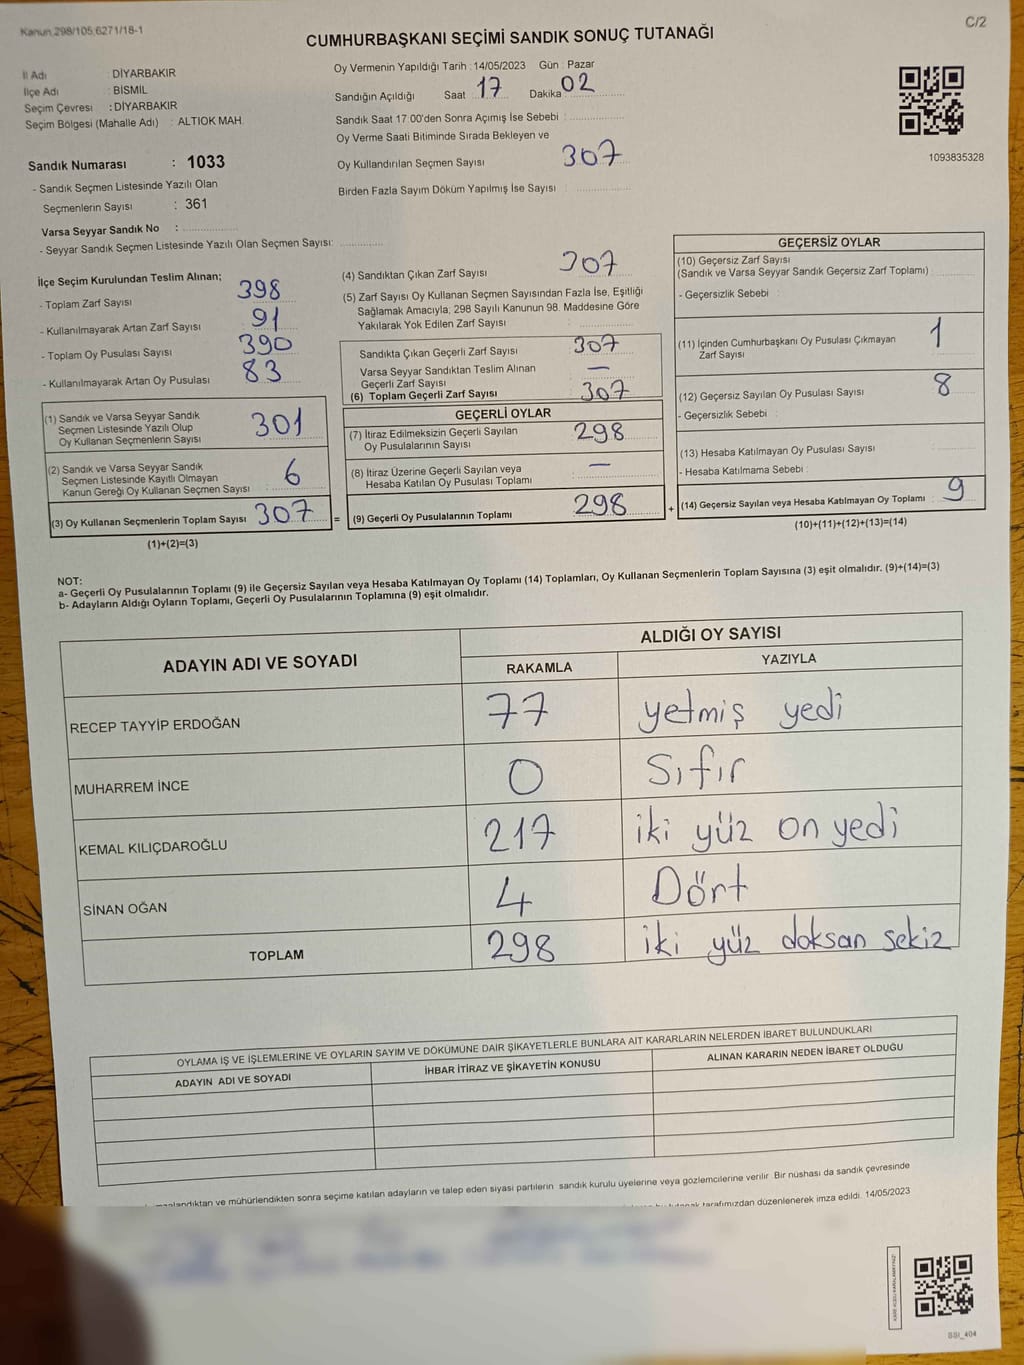 Kanun,298/105,6271/18-1
C/2
CUMHURBAŞKANI SEÇİMİ SANDIK SONUÇ TUTANAĞI
İl Adı : DİYARBAKIR
İlçe Adı : BİSMİL
Seçim Çevresi : DİYARBAKIR
Seçim Bölgesi (Mahalle Adı) : ALTIOK MAH.
Sandık Numarası : 1033
- Sandık Seçmen Listesinde Yazılı Olan
Seçmenlerin Sayısı : 361
Varsa Seyyar Sandık No :
- Seyyar Sandık Seçmen Listesinde Yazılı Olan Seçmen Sayısı:
Oy Vermenin Yapıldığı Tarih : 14/05/2023 Gün : Pazar
Sandığın Açıldığı Saat 17 Dakika 02
Sandık Saat 17:00'den Sonra Açımış İse Sebebi :
Oy Verme Saati Bitiminde Sırada Bekleyen ve
Oy Kullandırılan Seçmen Sayısı 307
Birden Fazla Sayım Döküm Yapılmış İse Sayısı :
1093835328
İlçe Seçim Kurulundan Teslim Alınan;
- Toplam Zarf Sayısı 398
- Kullanılmayarak Artan Zarf Sayısı 91
- Toplam Oy Pusulası Sayısı 390
- Kullanılmayarak Artan Oy Pusulası 83
(1) Sandık ve Varsa Seyyar Sandık
Seçmen Listesinde Yazılı Olup
Oy Kullanan Seçmenlerin Sayısı 301
(2) Sandık ve Varsa Seyyar Sandık
Seçmen Listesinde Kayıtlı Olmayan
Kanun Gereği Oy Kullanan Seçmen Sayısı : 6
(3) Oy Kullanan Seçmenlerin Toplam Sayısı 307 =
(1)+(2)=(3)
(4) Sandıktan Çıkan Zarf Sayısı 307
(5) Zarf Sayısı Oy Kullanan Seçmen Sayısından Fazla İse, Eşitliği
Sağlamak Amacıyla; 298 Sayılı Kanunun 98. Maddesine Göre
Yakılarak Yok Edilen Zarf Sayısı :
Sandıkta Çıkan Geçerli Zarf Sayısı 307
Varsa Seyyar Sandıktan Teslim Alınan
Geçerli Zarf Sayısı —
(6) Toplam Geçerli Zarf Sayısı 307
GEÇERLİ OYLAR
(7) İtiraz Edilmeksizin Geçerli Sayılan
Oy Pusulalarının Sayısı 298
(8) İtiraz Üzerine Geçerli Sayılan veya
Hesaba Katılan Oy Pusulası Toplamı —
(9) Geçerli Oy Pusulalarının Toplamı 298 +
GEÇERSİZ OYLAR
(10) Geçersiz Zarf Sayısı
(Sandık ve Varsa Seyyar Sandık Geçersiz Zarf Toplamı)
- Geçersizlik Sebebi :
(11) İçinden Cumhurbaşkanı Oy Pusulası Çıkmayan
Zarf Sayısı 1
(12) Geçersiz Sayılan Oy Pusulası Sayısı 8
- Geçersizlik Sebebi :
(13) Hesaba Katılmayan Oy Pusulası Sayısı
- Hesaba Katılmama Sebebi :
(14) Geçersiz Sayılan veya Hesaba Katılmayan Oy Toplamı : 9
(10)+(11)+(12)+(13)=(14)
NOT:
a- Geçerli Oy Pusulalarının Toplamı (9) ile Geçersiz Sayılan veya Hesaba Katılmayan Oy Toplamı (14) Toplamları, Oy Kullanan Seçmenlerin Toplam Sayısına (3) eşit olmalıdır. (9)+(14)=(3)
b- Adayların Aldığı Oyların Toplamı, Geçerli Oy Pusulalarının Toplamına (9) eşit olmalıdır.
ADAYIN ADI VE SOYADI
ALDIĞI OY SAYISI
RAKAMLA YAZIYLA
RECEP TAYYİP ERDOĞAN 77 yetmiş yedi
MUHARREM İNCE 0 Sıfır
KEMAL KILIÇDAROĞLU 217 iki yüz on yedi
SİNAN OĞAN 4 Dört
TOPLAM 298 iki yüz doksan sekiz
OYLAMA İŞ VE İŞLEMLERİNE VE OYLARIN SAYIM VE DÖKÜMÜNE DAİR ŞİKAYETLERLE BUNLARA AİT KARARLARIN NELERDEN İBARET BULUNDUKLARI
ADAYIN ADI VE SOYADI İHBAR İTİRAZ VE ŞİKAYETİN KONUSU ALINAN KARARIN NEDEN İBARET OLDUĞU
ve mühürlendikten sonra seçime katılan adayların ve talep eden siyasi partilerin sandık kurulu üyelerine veya gözlemcilerine verilir. Bir nüshası da sandık çevresinde
tarafımızdan düzenlenerek imza edildi. 14/05/2023
BSI_404